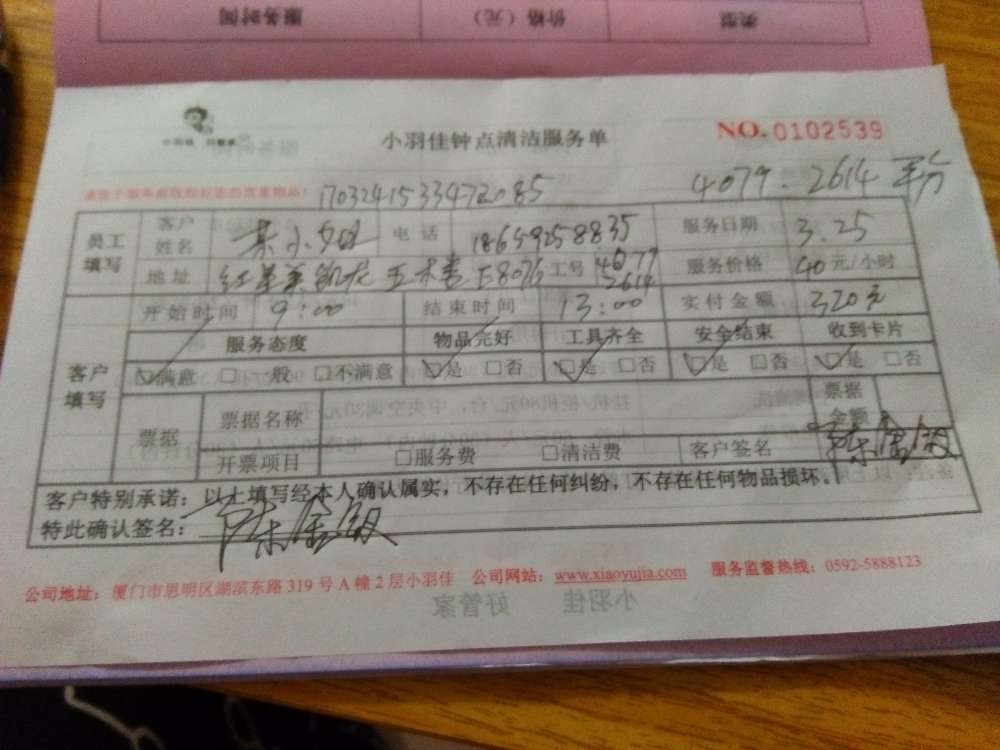 服务时间 价格（元） 类型
小羽佳 好管家
小羽佳钟点清洁服务单 NO.0102539
1703241533472085 4079.2614 平分
员工填写 客户姓名 小姐 电话 18659258835 服务日期 3.25
地址 红星美凯龙 E8076 工号 4079 2614 服务价格 40元/小时
开始时间 9:00 结束时间 13:00 实付金额 320元
客户填写 服务态度 物品完好 工具齐全 安全结束 收到卡片
☑满意 □一般 □不满意 ☑是 □否 ☑是 □否 ☑是 □否 ☑是 □否
票据 票据名称 票据金额
开票项目 □服务费 □清洁费 客户签名 陈金
客户特别承诺：以上填写经本人确认属实，不存在任何纠纷，不存在任何物品损坏。
特此确认签名： 陈金
公司地址：厦门市思明区湖滨东路 319 号 A 幢 2 层小羽佳 公司网站：www.xiaoyujia.com 服务监督热线：0592-5888123
小羽佳 好管家